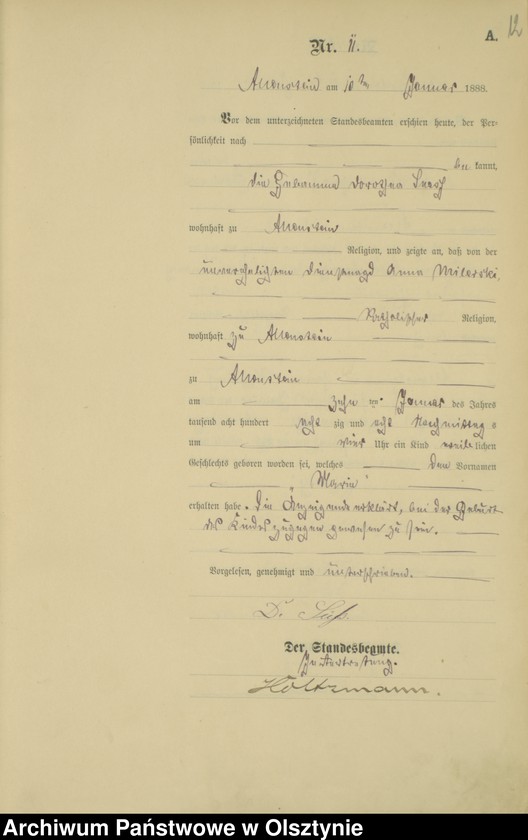 A. 12
Nr. 11.
Allenstein am 10ten Januar 1888.
Vor dem unterzeichneten Standesbeamten erschien heute, der Per-
sönlichkeit nach
be kannt,
die Hebamme Dorothea
wohnhaft zu Allenstein
Religion, und zeigte an, daß von der
unverehelichten Dienstmagd Anna Milewski,
Katholischer Religion,
wohnhaft zu Allenstein
zu Allenstein
am zehn ten Januar des Jahres
tausend acht hundert acht zig und acht Nachmittag s
um vier Uhr ein Kind weib lichen
Geschlechts geboren worden sei, welches den Vornamen
„Maria“
erhalten habe. Die Anzeigende erklärt, bei der Geburt
des Kindes zugegen gewesen zu sein.
Vorgelesen, genehmigt und unterschrieben.
D.
Der Standesbeamte.
In Vertretung.
Holtzmann.
Archiwum Państwowe w Olsztynie